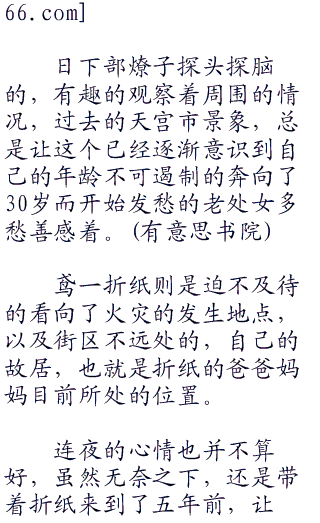 66.com]
日下部燎子探头探脑
的，有趣的观察着周围的情
况，过去的天宫市景象，总
是让这个已经逐渐意识到自
己的年龄不可遏制的奔向了
30岁而开始发愁的老处女多
愁善感着。(有意思书院)
鸢一折纸则是迫不及待
的看向了火灾的发生地点，
以及街区不远处的，自己的
故居，也就是折纸的爸爸妈
妈目前所处的位置。
连夜的心情也并不算
好，虽然无奈之下，还是带
着折纸来到了五年前，让